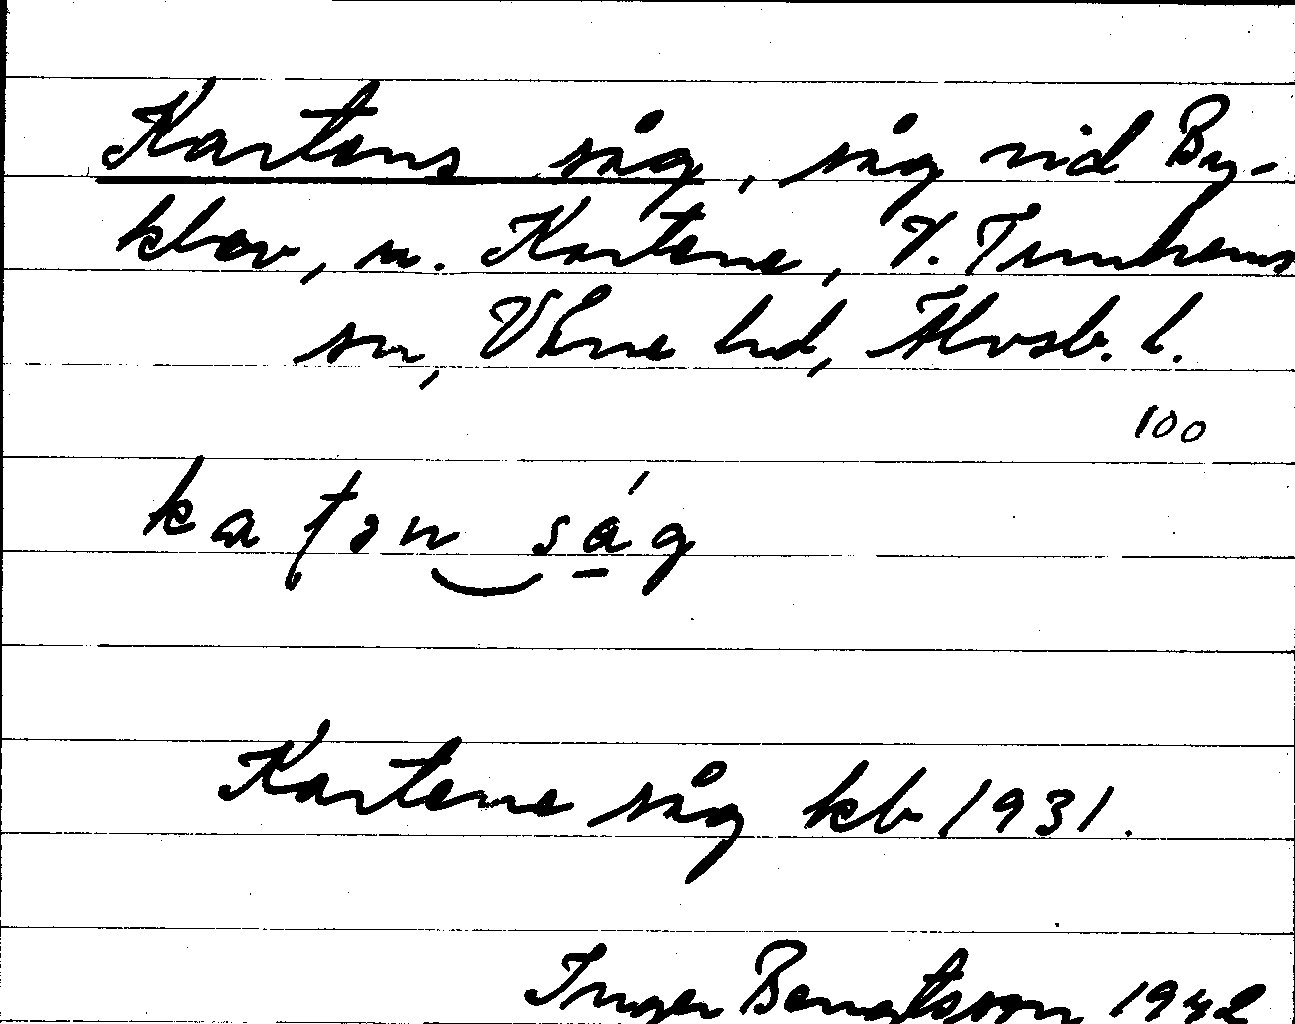 Kartens såg, såg vid By-
klev, u. Kartene, V. Tunhems
sn, Väne hd, Älvsb. l.
100
kaʈən såg
Kartene såg kb 1931.
Inger Bengtsson 1942